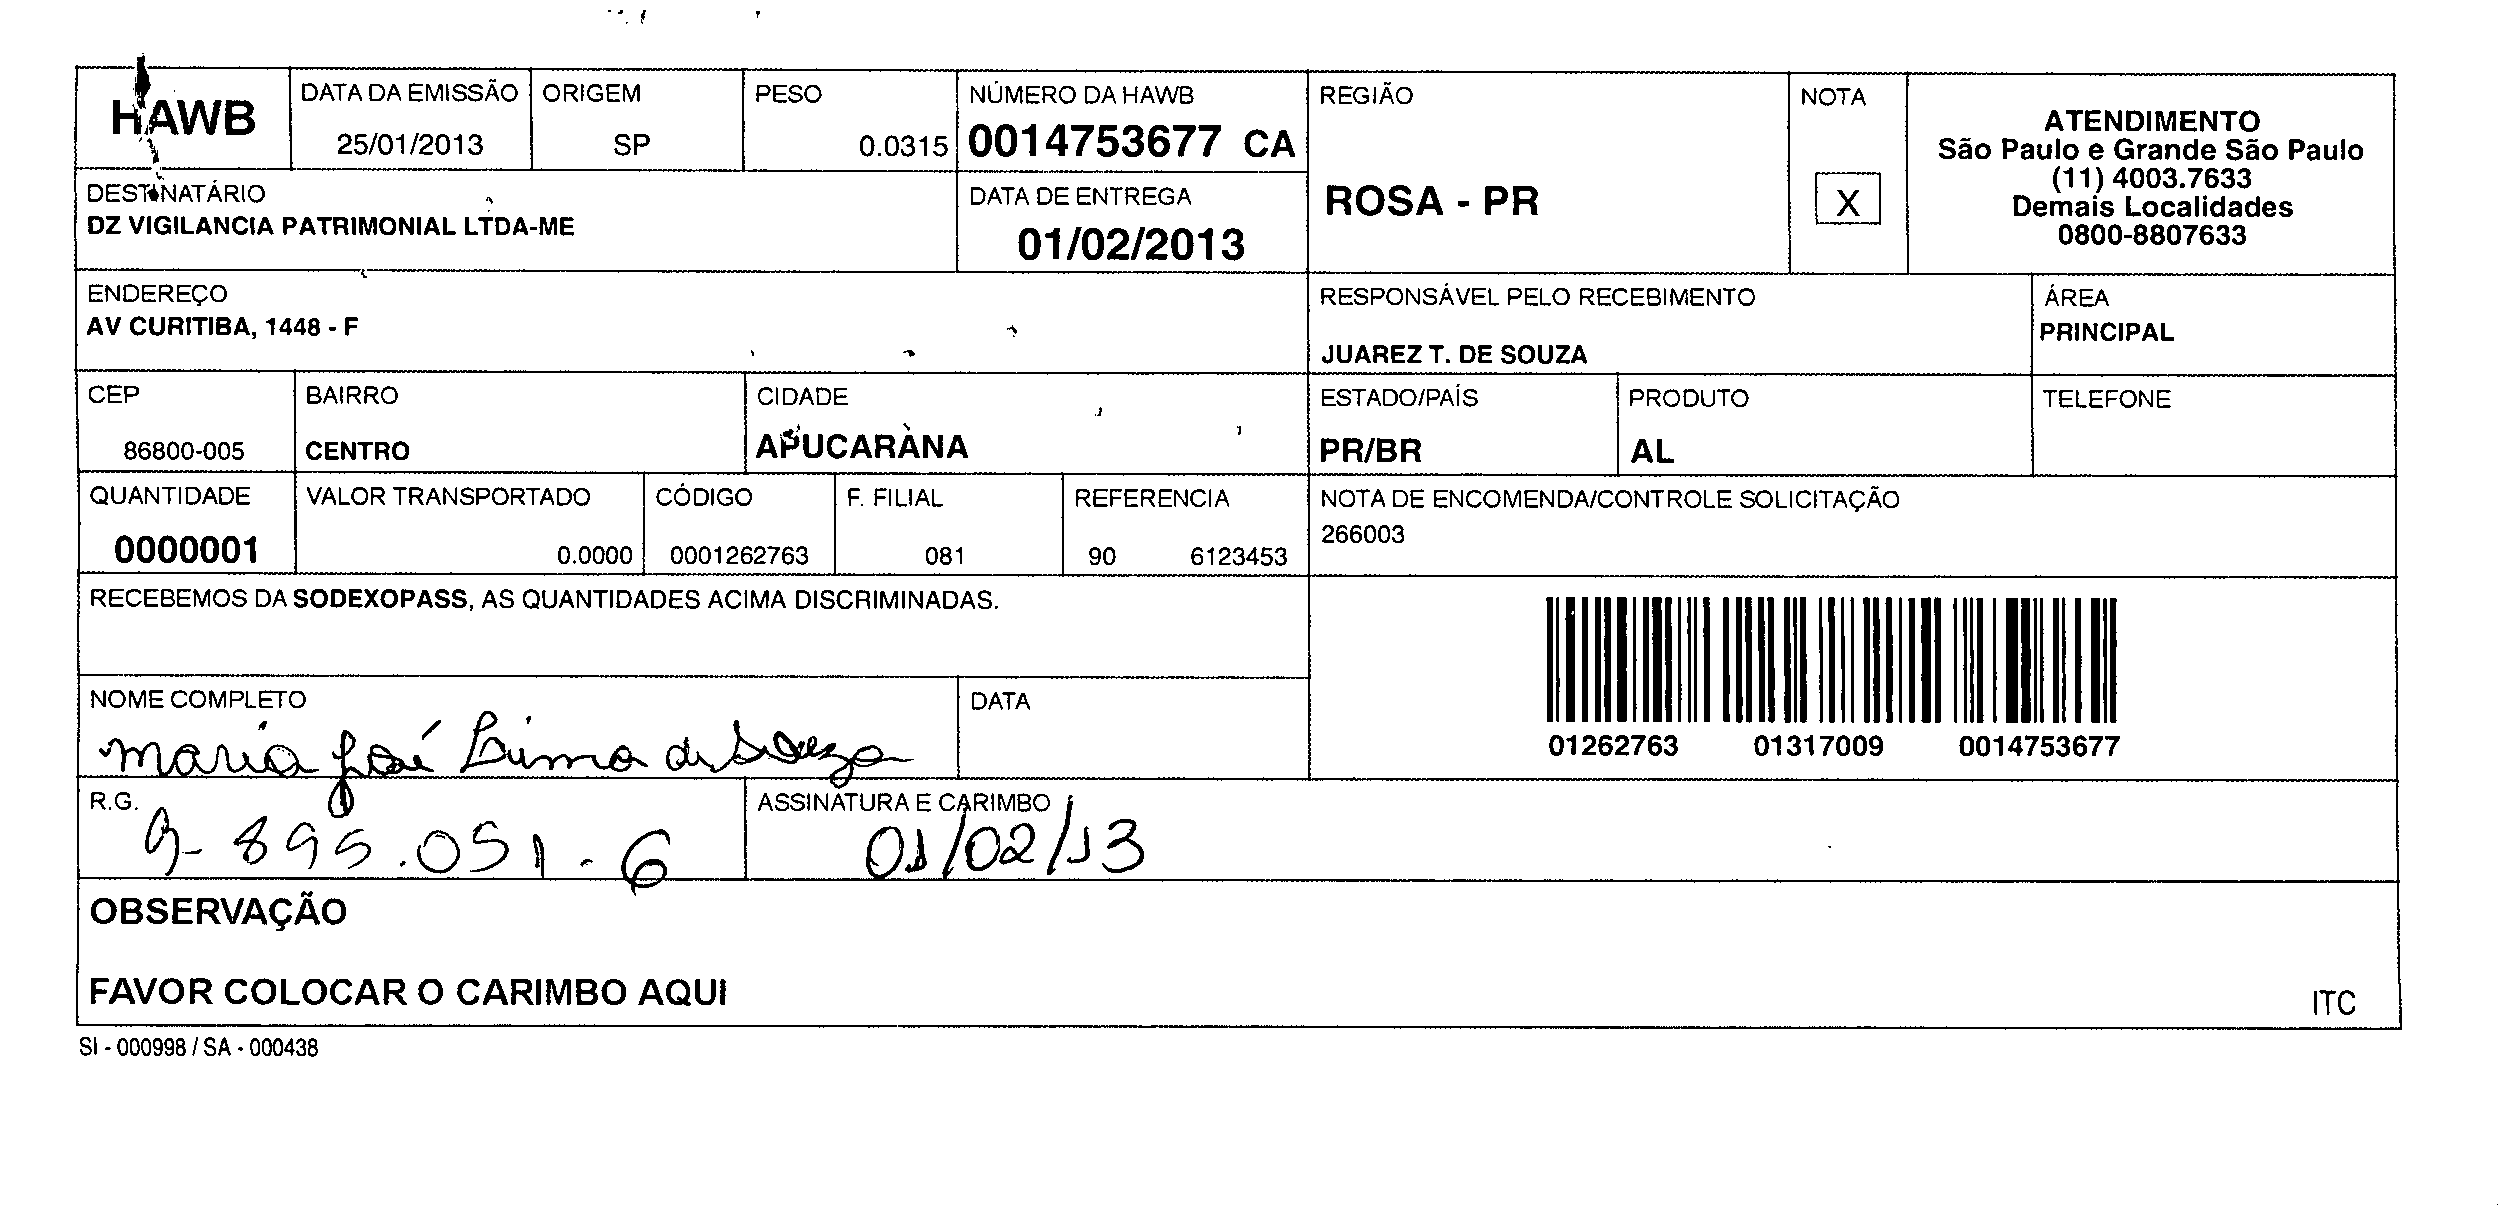 HAWB
DATA DA EMISSÃO
25/01/2013
ORIGEM
SP
PESO
0.0315
NÚMERO DA HAWB
0014753677 CA
REGIÃO
ROSA - PR
NOTA
X
ATENDIMENTO
São Paulo e Grande São Paulo
(11) 4003.7633
Demais Localidades
0800-8807633
DESTINATÁRIO
DZ VIGILANCIA PATRIMONIAL LTDA-ME
DATA DE ENTREGA
01/02/2013
ENDEREÇO
AV CURITIBA, 1448 - F
RESPONSÁVEL PELO RECEBIMENTO
JUAREZ T. DE SOUZA
ÁREA
PRINCIPAL
CEP
86800-005
BAIRRO
CENTRO
CIDADE
APUCARANA
ESTADO/PAÍS
PR/BR
PRODUTO
AL
TELEFONE
QUANTIDADE
0000001
VALOR TRANSPORTADO
0.0000
CÓDIGO
0001262763
F. FILIAL
081
REFERENCIA
90 6123453
NOTA DE ENCOMENDA/CONTROLE SOLICITAÇÃO
266003
RECEBEMOS DA SODEXOPASS, AS QUANTIDADES ACIMA DISCRIMINADAS.
01262763 01317009 0014753677
NOME COMPLETO
maria José Lima de Souza
DATA
R.G.
9-895.051-6
ASSINATURA E CARIMBO
01/02/13
OBSERVAÇÃO
FAVOR COLOCAR O CARIMBO AQUI
ITC
SI - 000998 / SA - 000438